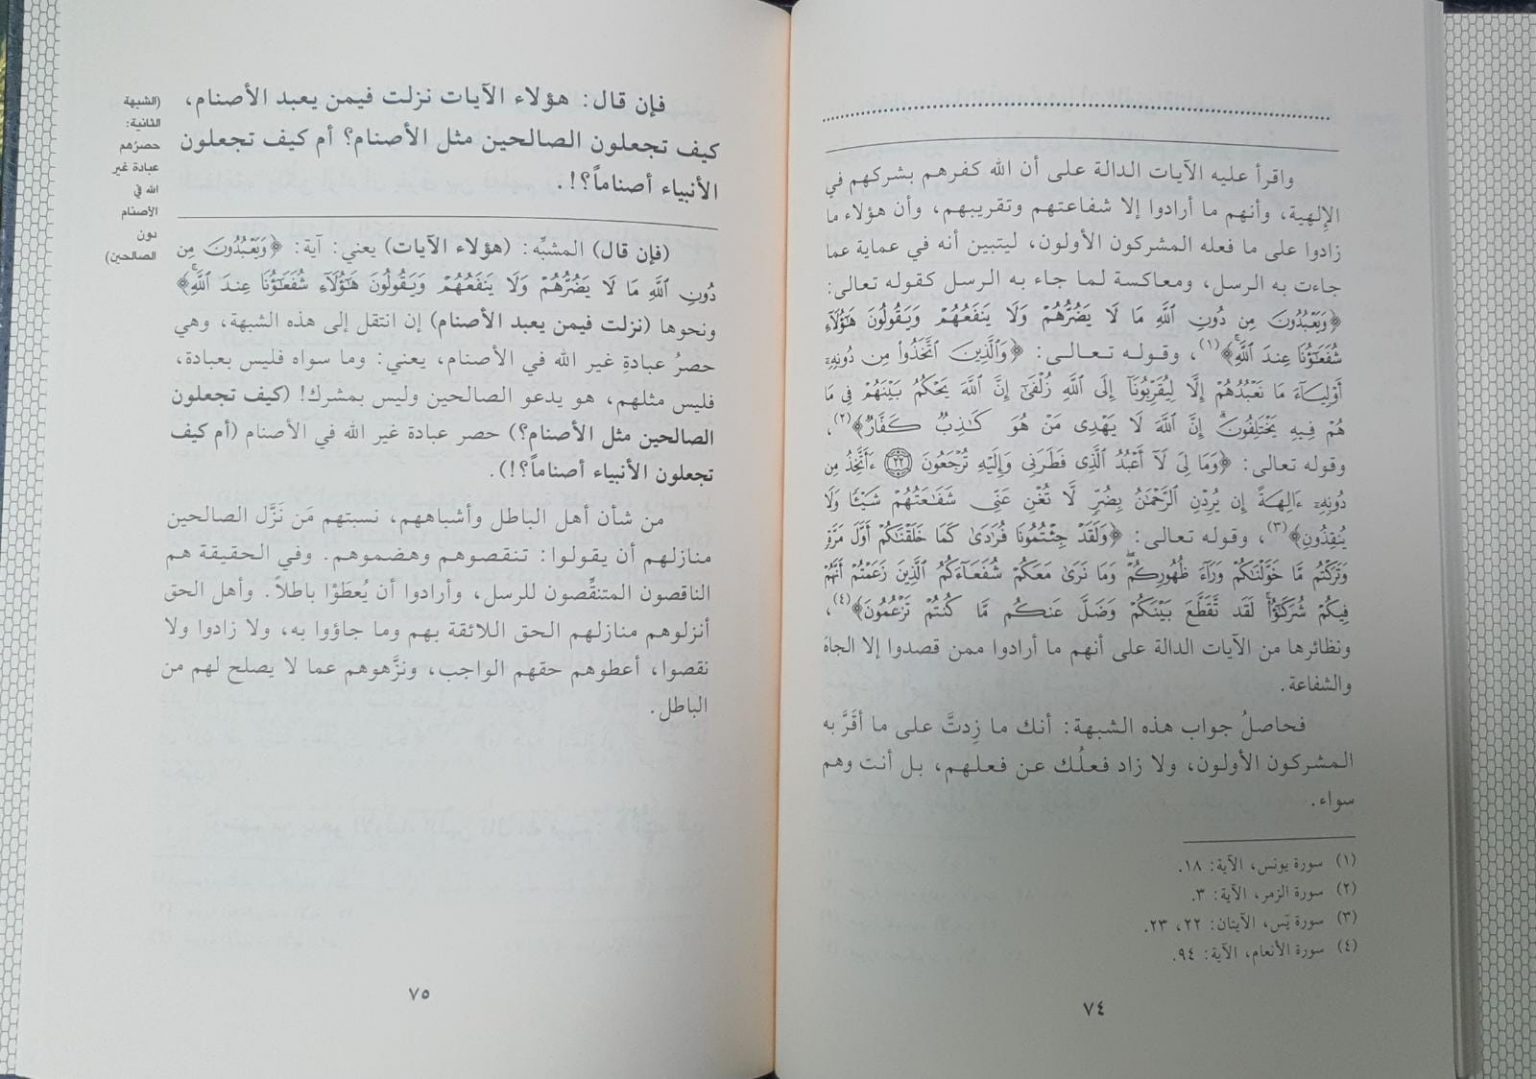 واقرأ عليه الآيات الدالة على أن الله كفرهم بشركهم في
الإلهية، وأنهم ما أرادوا إلا شفاعتهم وتقريبهم، وأن هؤلاء ما
زادوا على ما فعله المشركون الأولون، ليتبين أنه في عماية عما
جاءت به الرسل، ومعاكسة لما جاء به الرسل كقوله تعالى:
﴿وَيَعْبُدُونَ مِن دُونِ ٱللَّهِ مَا لَا يَضُرُّهُمْ وَلَا يَنفَعُهُمْ وَيَقُولُونَ هَٰٓؤُلَآءِ
شُفَعَٰٓؤُنَا عِندَ ٱللَّهِ﴾(١)، وقوله تعالى: ﴿وَٱلَّذِينَ ٱتَّخَذُوا۟ مِن دُونِهِۦٓ
أَوْلِيَآءَ مَا نَعْبُدُهُمْ إِلَّا لِيُقَرِّبُونَآ إِلَى ٱللَّهِ زُلْفَىٰٓ إِنَّ ٱللَّهَ يَحْكُمُ بَيْنَهُمْ فِى مَا
هُمْ فِيهِ يَخْتَلِفُونَ ۗ إِنَّ ٱللَّهَ لَا يَهْدِى مَنْ هُوَ كَٰذِبٌ كَفَّارٌ﴾(٢)،
وقوله تعالى: ﴿وَمَا لِىَ لَآ أَعْبُدُ ٱلَّذِى فَطَرَنِى وَإِلَيْهِ تُرْجَعُونَ ٢٢ ءَأَتَّخِذُ مِن
دُونِهِۦٓ ءَالِهَةً إِن يُرِدْنِ ٱلرَّحْمَٰنُ بِضُرٍّ لَّا تُغْنِ عَنِّى شَفَٰعَتُهُمْ شَيْـًٔا وَلَا
يُنقِذُونِ﴾(٣)، وقوله تعالى: ﴿وَلَقَدْ جِئْتُمُونَا فُرَٰدَىٰ كَمَا خَلَقْنَٰكُمْ أَوَّلَ مَرَّةٍ
وَتَرَكْتُم مَّا خَوَّلْنَٰكُمْ وَرَآءَ ظُهُورِكُمْ ۖ وَمَا نَرَىٰ مَعَكُمْ شُفَعَآءَكُمُ ٱلَّذِينَ زَعَمْتُمْ أَنَّهُمْ
فِيكُمْ شُرَكَٰٓؤُا۟ ۚ لَقَد تَّقَطَّعَ بَيْنَكُمْ وَضَلَّ عَنكُم مَّا كُنتُمْ تَزْعُمُونَ﴾(٤)،
ونظائرها من الآيات الدالة على أنهم ما أرادوا ممن قصدوا إلا الجاهَ
والشفاعة.
فحاصلُ جواب هذه الشبهة: أنك ما زِدتَّ على ما أقَرَّ به
المشركون الأولون، ولا زاد فعلُك عن فعلهم، بل أنت وهم
سواء.
(١) سورة يونس، الآية: ١٨.
(٢) سورة الزمر، الآية: ٣.
(٣) سورة يَس، الآيتان: ٢٢، ٢٣.
(٤) سورة الأنعام، الآية: ٩٤.
٧٤
فإن قال: هؤلاء الآيات نزلت فيمن يعبد الأصنام،
كيف تجعلون الصالحين مثل الأصنام؟ أم كيف تجعلون
الأنبياء أصناماً؟!.
(الشبهة
الثانية:
حصرُهم
عبادة غير
الله في
الأصنام
دون
الصالحين)
(فإن قال) المشبِّه: (هؤلاء الآيات) يعني: آية: ﴿وَيَعْبُدُونَ مِن
دُونِ ٱللَّهِ مَا لَا يَضُرُّهُمْ وَلَا يَنفَعُهُمْ وَيَقُولُونَ هَٰٓؤُلَآءِ شُفَعَٰٓؤُنَا عِندَ ٱللَّهِ﴾
ونحوها (نزلت فيمن يعبد الأصنام) إن انتقل إلى هذه الشبهة، وهي
حصرُ عبادةِ غير الله في الأصنام، يعني: وما سواه فليس بعبادة،
فليس مثلهم، هو يدعو الصالحين وليس بمشرك! (كيف تجعلون
الصالحين مثل الأصنام؟) حصر عبادة غير الله في الأصنام (أم كيف
تجعلون الأنبياء أصناماً؟!).
من شأن أهل الباطل وأشباههم، نسبتهم مَن نَزَّل الصالحين
منازلهم أن يقولوا: تنقصوهم وهضموهم. وفي الحقيقة هم
الناقصون المتنقِّصون للرسل، وأرادوا أن يُعطَوْا باطلاً. وأهل الحق
أنزلوهم منازلهم الحق اللائقة بهم وما جاؤوا به، ولا زادوا ولا
نقصوا، أعطوهم حقهم الواجب، ونزَّهوهم عما لا يصلح لهم من
الباطل.
٧٥